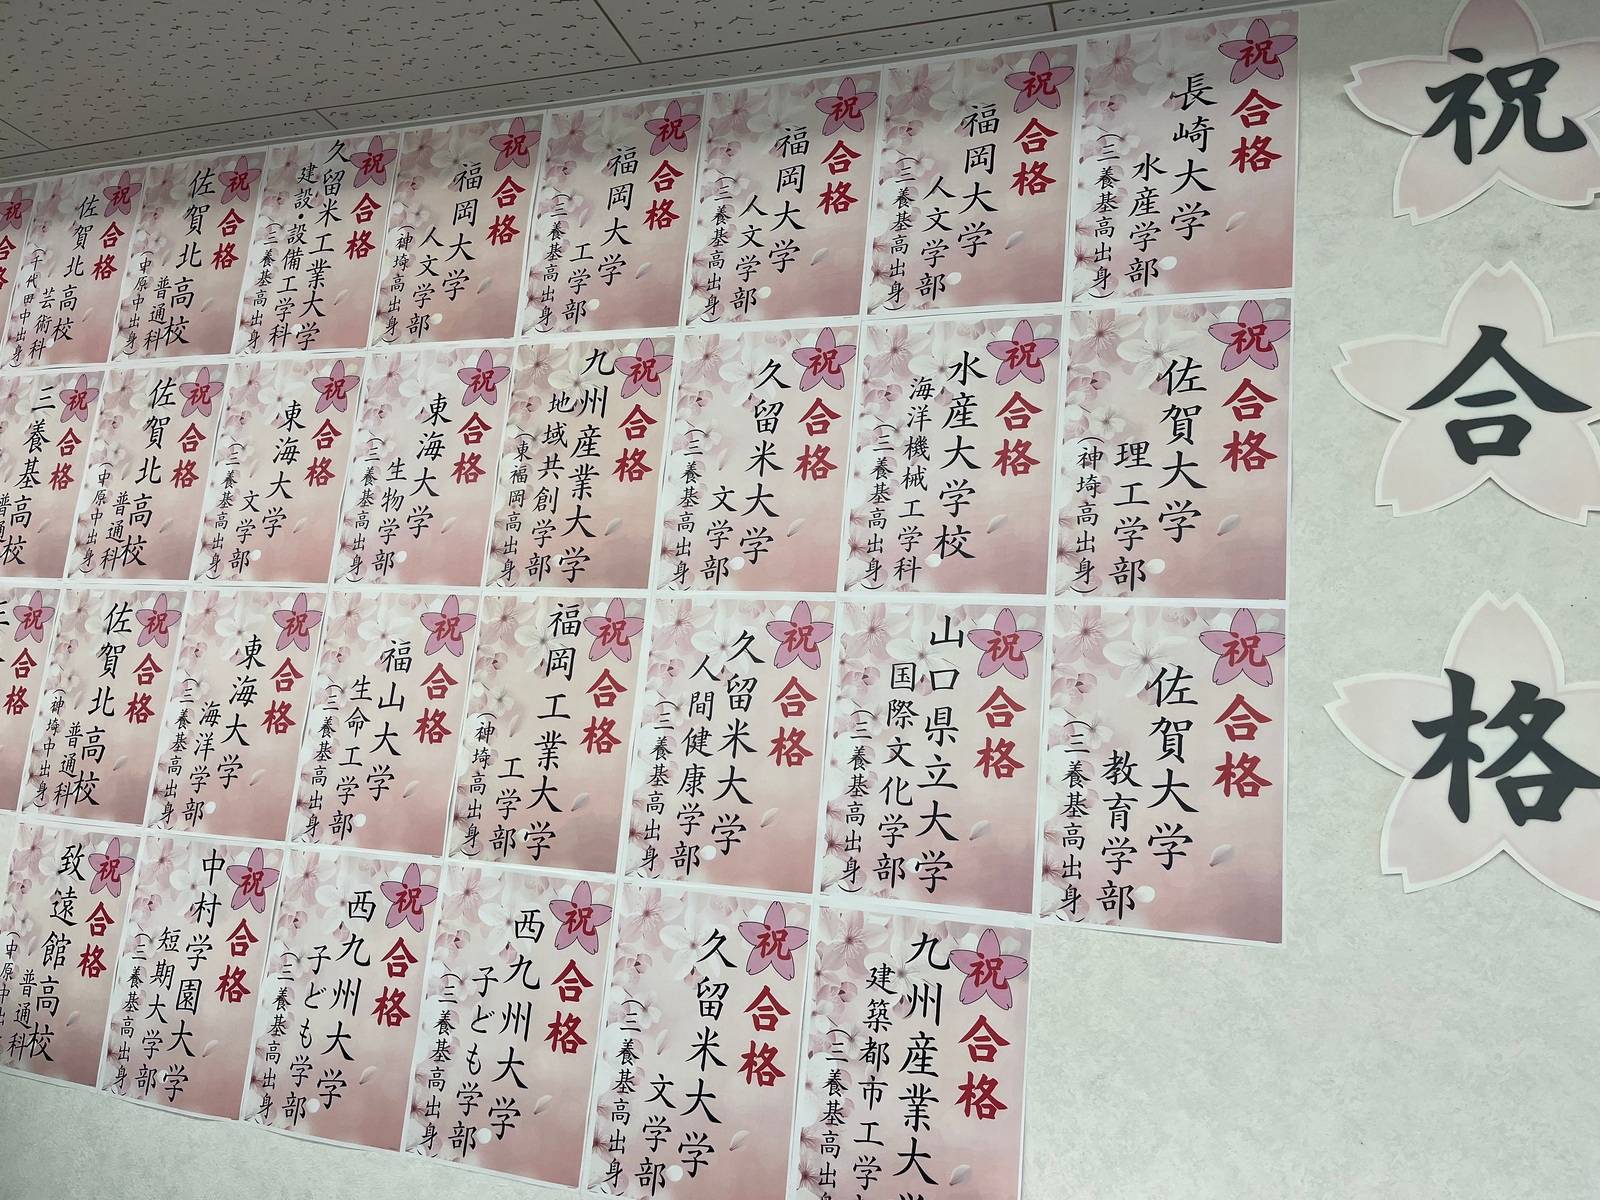 祝
合
格
祝
合格
長崎大学
水産学部
(三養基高出身)
祝
合格
福岡大学
人文学部
(三養基高出身)
祝
合格
福岡大学
人文学部
(三養基高出身)
祝
合格
福岡大学
工学部
(三養基高出身)
祝
合格
福岡大学
人文学部
(神埼高出身)
祝
合格
久留米工業大学
建設・設備工学科
(三養基高出身)
祝
合格
佐賀北高校
普通科
(中原中出身)
祝
合格
佐賀北高校
芸術科
(千代田中出身)
祝
合格
祝
合格
佐賀大学
理工学部
(神埼高出身)
祝
合格
水産大学校
海洋機械工学科
(三養基高出身)
祝
合格
久留米大学
文学部
(三養基高出身)
祝
合格
九州産業大学
地域共創学部
(東福岡高出身)
祝
合格
東海大学
生物学部
(三養基高出身)
祝
合格
東海大学
文学部
(三養基高出身)
祝
合格
佐賀北高校
普通科
(中原中出身)
祝
合格
三養基高校
普通科
祝
合格
佐賀大学
教育学部
(三養基高出身)
祝
合格
山口県立大学
国際文化学部
(三養基高出身)
祝
合格
久留米大学
人間健康学部
(三養基高出身)
祝
合格
福岡工業大学
工学部
(神埼高出身)
祝
合格
福山大学
生命工学部
(三養基高出身)
祝
合格
東海大学
海洋学部
(三養基高出身)
祝
合格
佐賀北高校
普通科
(神埼中出身)
祝
合格
祝
合格
九州産業大学
建築都市工学
(三養基高出身
祝
合格
久留米大学
文学部
(三養基高出身)
祝
合格
西九州大学
子ども学部
(三養基高出身)
祝
合格
西九州大学
子ども学部
(三養基高出身)
祝
合格
中村学園大学
短期大学部
(三養基高出身)
祝
合格
致遠館高校
普通科
(中原中出